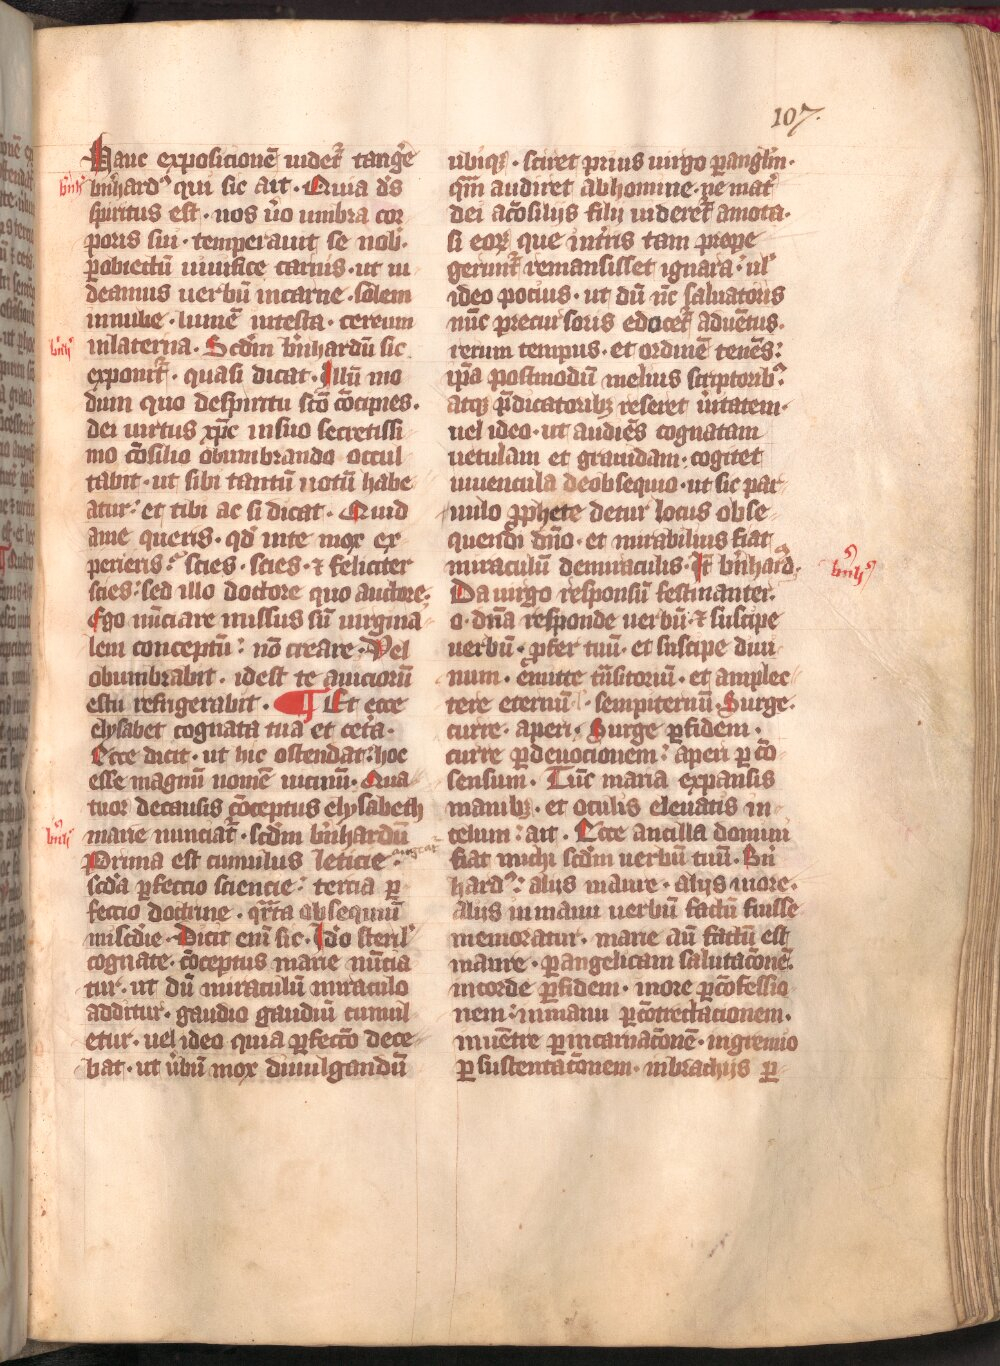 107.
Hanc exposicionē uidet᷑ tangẽ
bñhard᷒ qui sic ait · Quia d̄s
spiritus est · nos ṽo umbra cor
poris sui · temperauit se nob̄ ·
ꝑobiectū uiuifice carnis · ut ui
deamus uerbū incarne · solem
innube · lumē intesta · cereum
inlaterna · Scd̄m bñhardū sic
exponit᷑ · quasi dicat · Illū mo
dum quo despiritu sc̄o cōcipies ·
dei uirtus xp̄c insuo secretissi
mo cōsilio obumbrando occul
tabit · ut sibi tantū notū habe
atur : et tibi ac si dicat · Quid
ame queris · qd̄ inte mox ex
perieris : scies · scies · ⁊ feliciter
scies : sed illo doctore quo auctore ·
Ego nūciare missus sū uirgina
lem conceptū : nō creare · Vel
obumbrabit · idest te auiciorū
estu refrigerabit · ¶ Et ecce
elysabet cognata tua et cetã ·
Ecce dicit · ut hic ostendat : hoc
esse magnū nomē uicinū · Qua
tuor decausis cōceptus elysabeth
marie nunciat᷑ · scd̄m bñhardū
Prima est cumulus leticie · augetat᷑
scd̄a ꝑfeccio sciencie : tercia ꝑ
feccio doctrine · qr̄ta obsequiū
mis̄cdie · Dicit enī sic · Id̄o steril᷒
cognate · cōceptus marie nūcia
tur · ut dū miraculū miraculo
additur · gaudio gaudiū cumul
etur · uel ideo quia ꝑfectō dece
bat · ut ũbū mox diuulgandū
ubiqꝫ · sciret prius uirgo ꝑangl̄m ·
qm̄ audiret abhomine · ne mat᷑
dei ac̄osilijs filij uideret᷑ amota ·
si eoꝝ que int̃ris tam prope
gerunt᷑ remansisset ignara : ul᷒
ideo pocius · ut dū nc̄ saluatoris
nūc precursoris edocet᷑ aduētus ·
rerum tempus · et ordinē tenēs :
ip̄a postmodū melius scriptorib᷒
atqꝫ p̄dicatoribꝫ reseret ũitatem ·
uel ideo · ut audiēs cognatam
uetulam et grauidam · cogitet
iuuencula deobsequio · ut sic par
uulo ꝓphete detur locus obse
quendi dn̄o · et mirabilius fiat
miraculū demiraculis · It᷑ bñhard᷒ ·
Da uirgo responsū festinanter ·
o · dn̄a responde uerbū · ⁊ suscipe
uerbū · ꝓfer tuū · et suscipe diui
num · emitte tn̄sitoriū · et amplec
tere eternū · sempiternū · Surge ·
curre · aperi · Surge ꝑfidem ·
curre ꝑdeuocionem : aperi ꝑ cō
sensum · Tūc maria expansis
manibꝫ · et oculis eleuatis in
celum : ait · Ecce ancilla domini
fiat michi scd̄m uerbū tuū · Bñ
hard᷒ : alijs inaure · alijs inore ·
alijs inmanu uerbū factū fuisse
memoratur · marie aū factū est
inaure · ꝑangelicam salutac̄onē ·
incorde ꝑfidem · inore ꝑcōfessio
nem : inmanu ꝑcōtrectacionem ·
inuētre ꝑincarnac̄onē · ingremio
ꝑsustentac̄onem · inbrachijs ꝑ
bñh᷒
bñh᷒
bñh᷒
bñh᷒